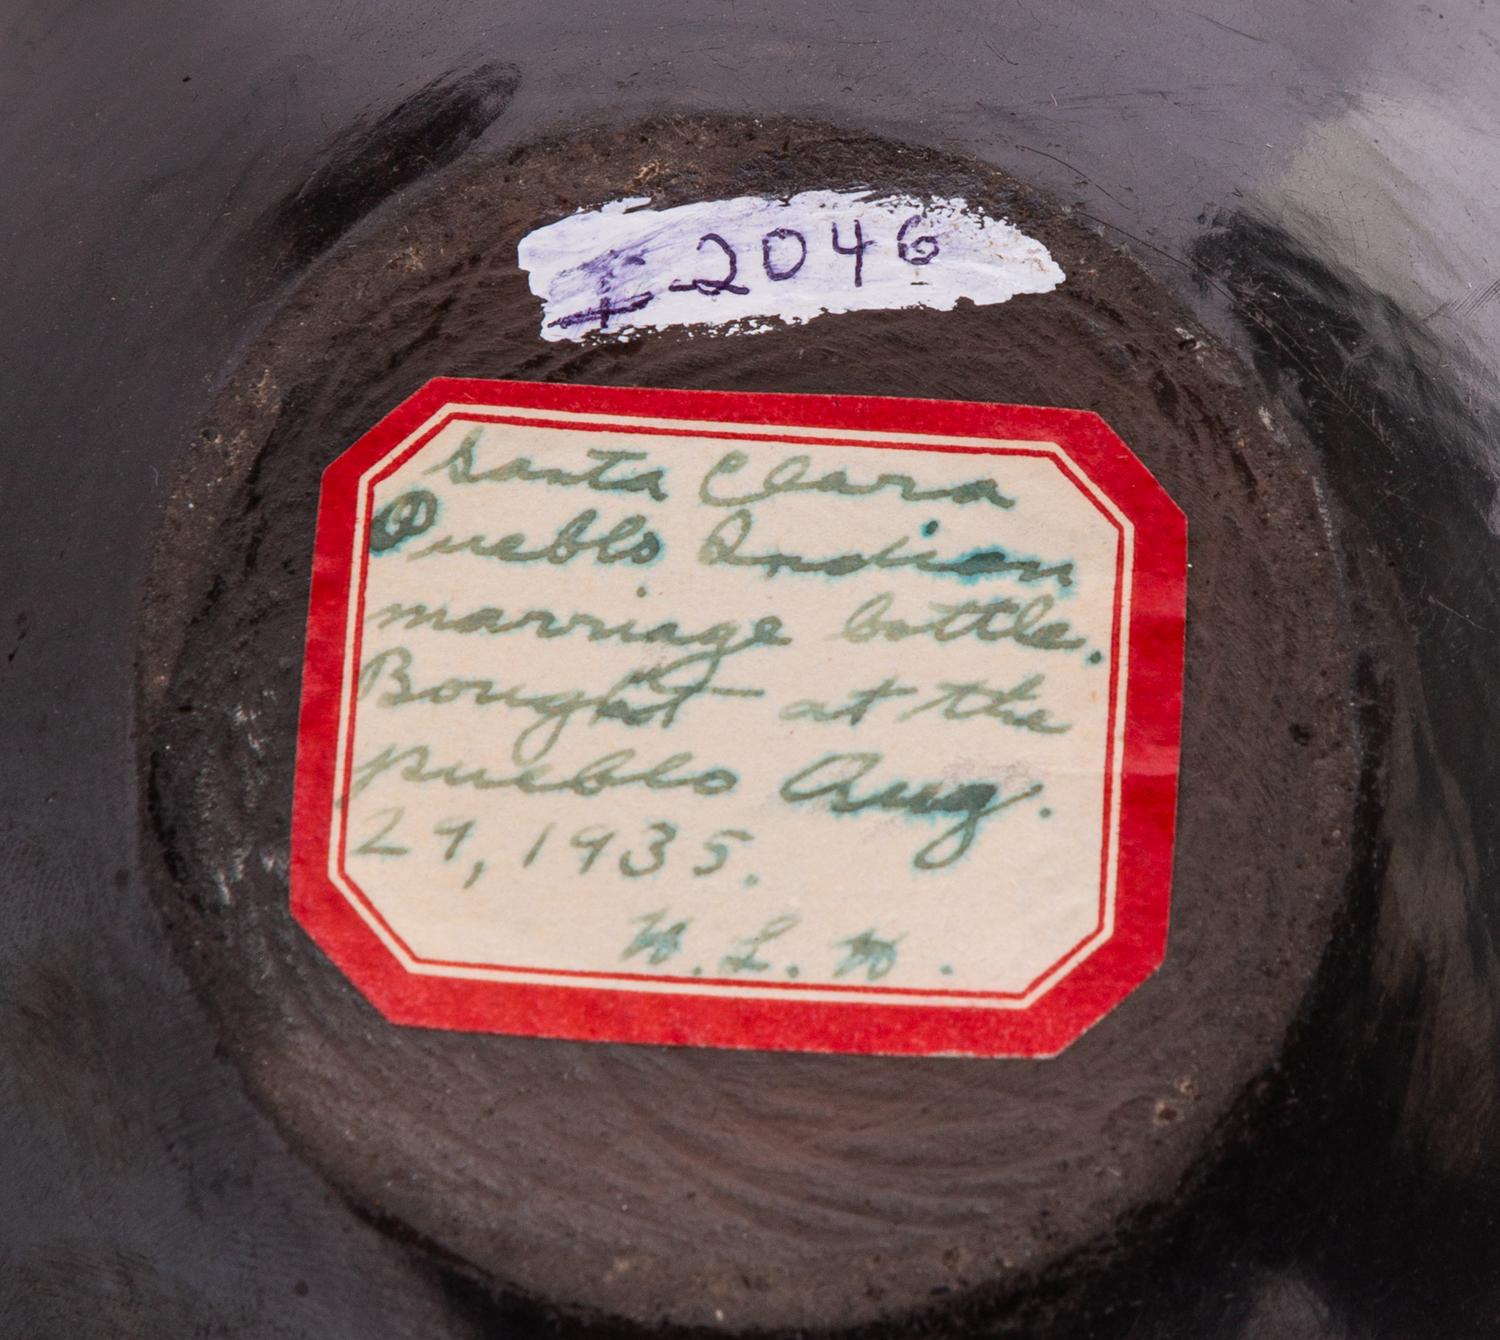 I-2046
Santa Clara
Pueblo Indian
marriage bottle.
Bought at the
pueblo Aug.
29, 1935.
W. L. W.